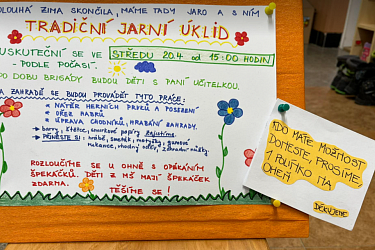 DLOUHÁ ZIMA SKONČILA, MÁME TADY JARO A S NÍM
TRADIČNÍ JARNÍ ÚKLID
USKUTEČNÍ SE VE STŘEDU 20.4 od 15:00 HODIN
- PODLE POČASÍ.
PO DOBU BRIGÁDY BUDOU DĚTI S PANÍ UČITELKOU.
NA ZAHRADĚ SE BUDOU PROVÁDĚT TYTO PRÁCE:
* NÁTĚR HERNÍCH PRVKŮ A POSEZENÍ
* OŘEZ KEŘŮ
* ÚPRAVA CHODNÍKU, HRABÁNÍ ZAHRADY,
→ barvy, štětce, smirkové papíry zajistíme.
PŘINESTE SI: hrábě, smeták, motyčky, gumové
rukavice, vhodný oděv, zahradní nůžky
ROZLOUČÍME SE U OHNĚ S OPÉKÁNÍM
ŠPEKÁČKŮ. DĚTI Z MŠ MAJÍ ŠPEKÁČEK
ZDARMA.
TĚŠÍME SE!
KDO MÁTE MOŽNOST
DONESTE, PROSÍME,
1 POLÍNKO NA
OHEŇ
DĚKUJEME